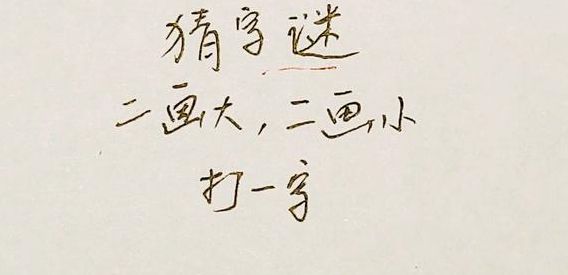 猜字谜
二画大,二画小
打一字